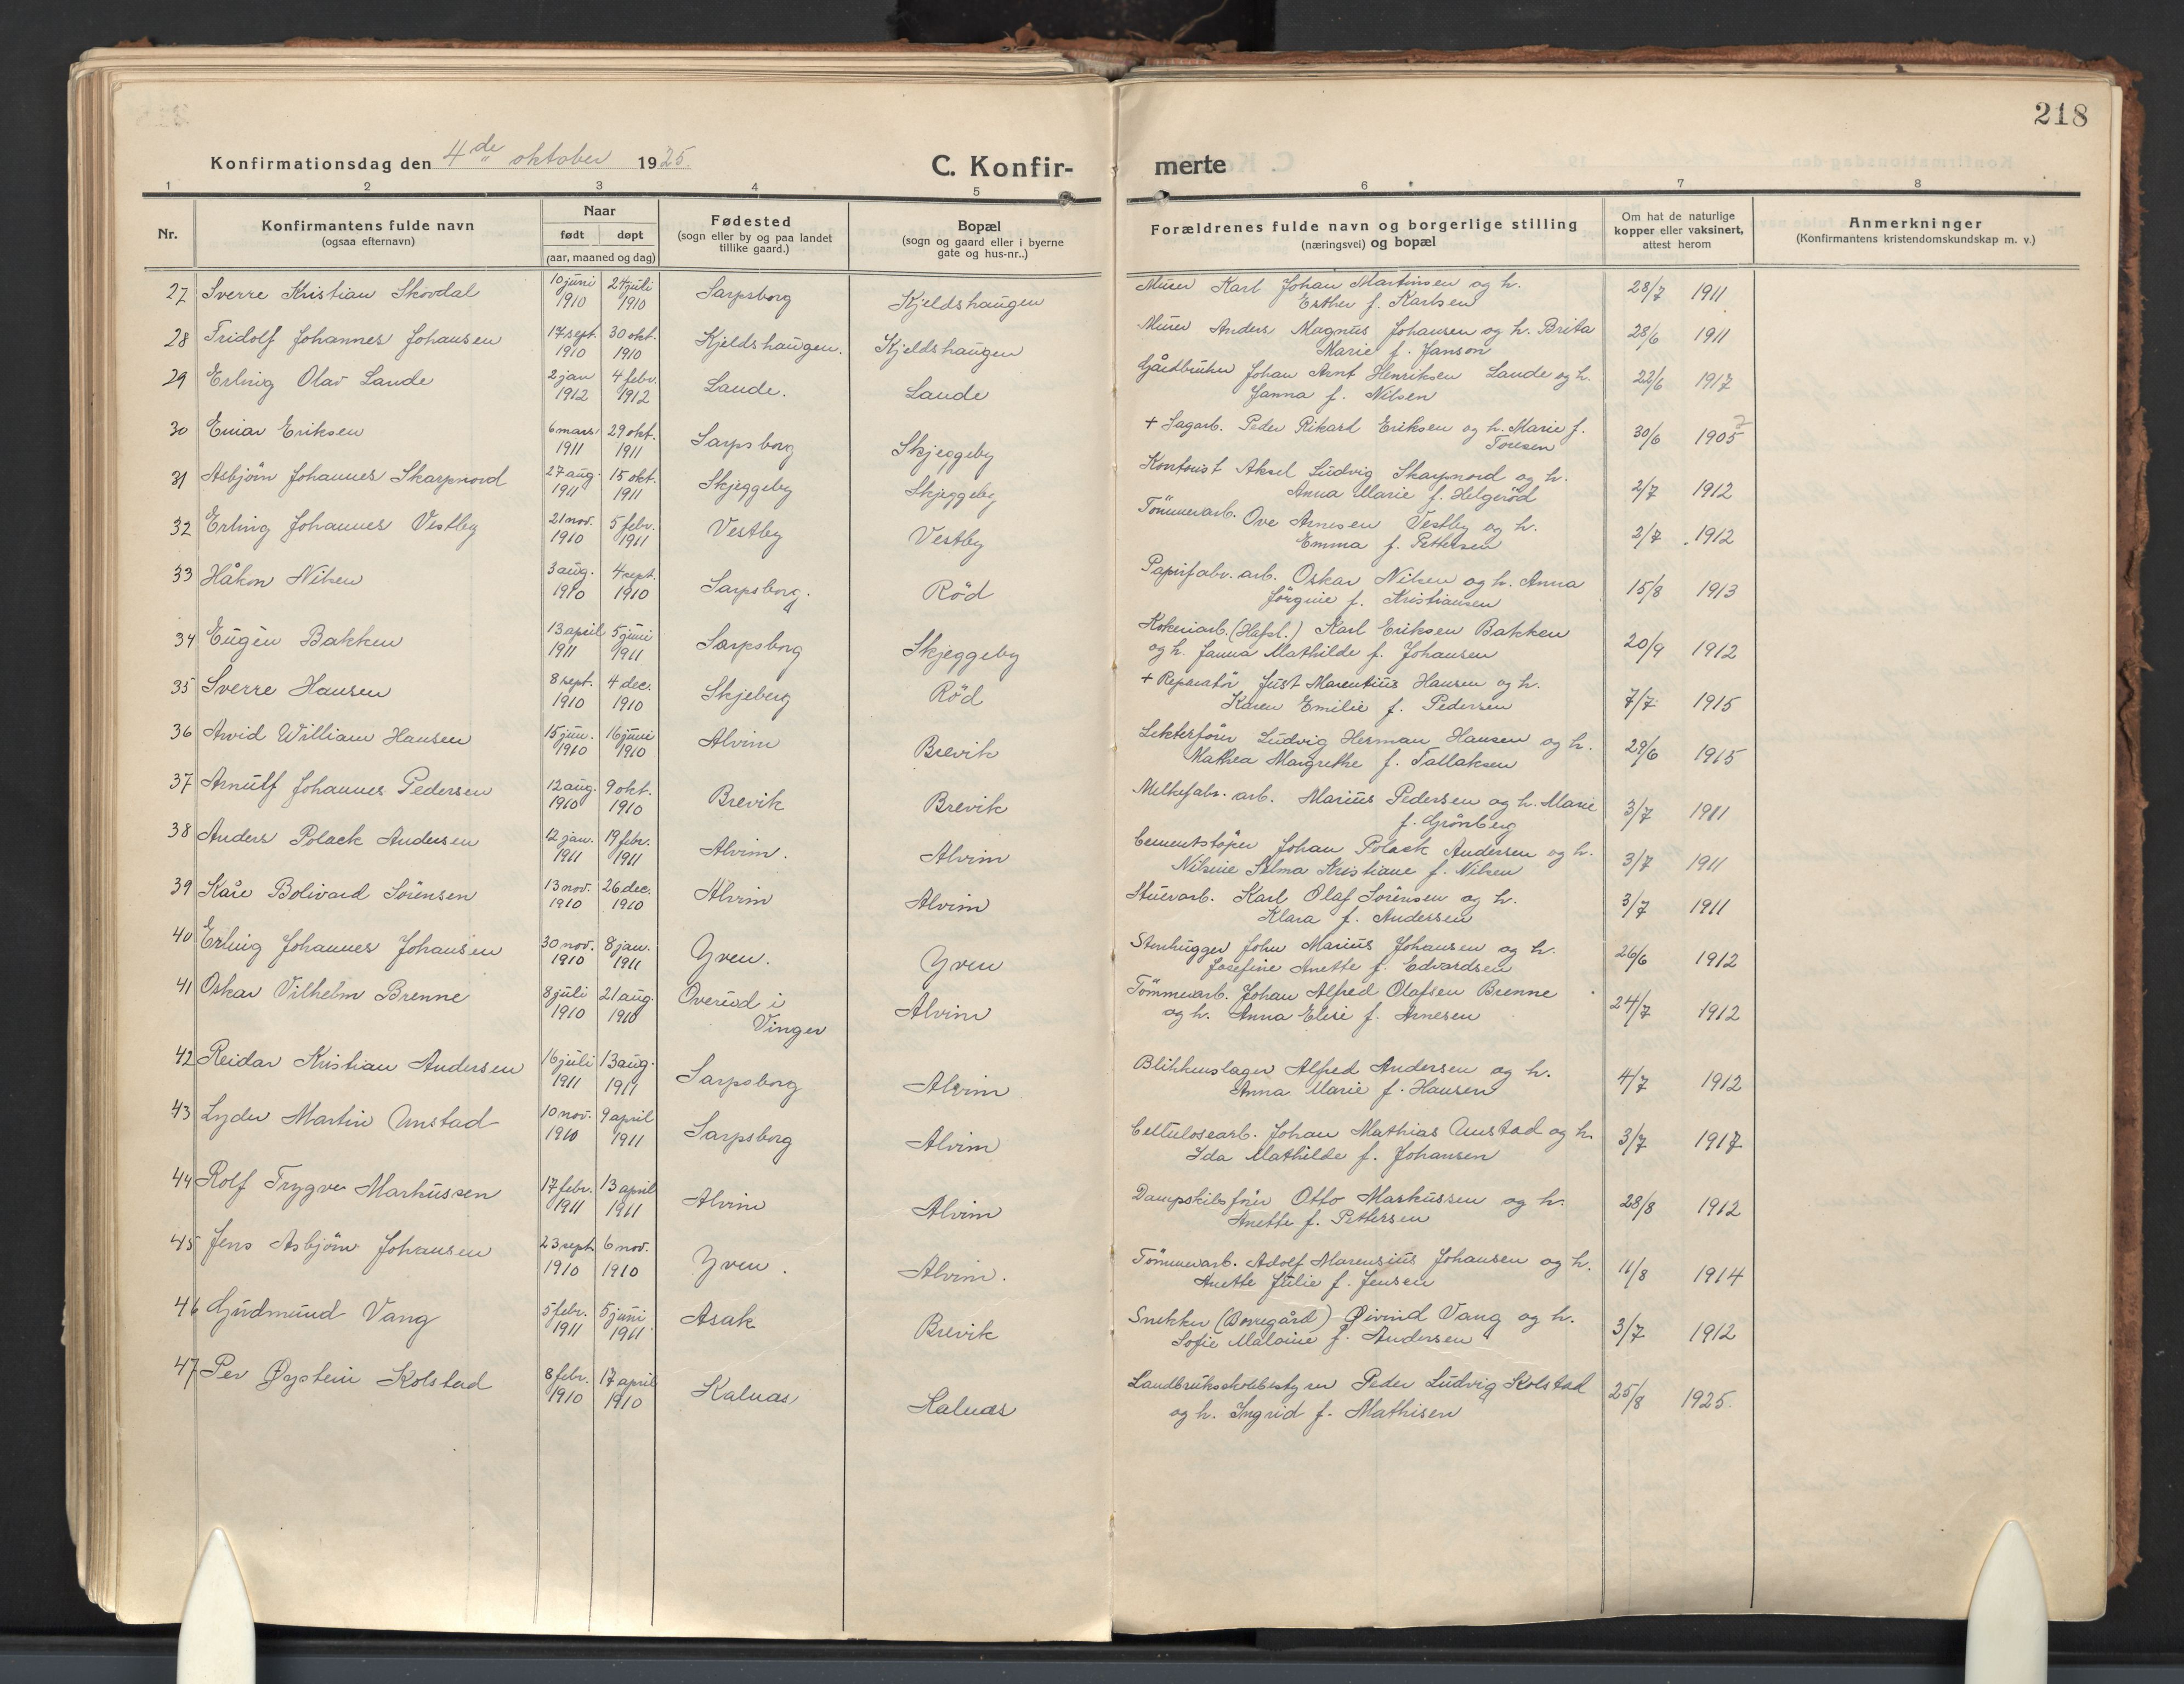 218
Konfirmationsdag den 4de oktober 1925.
C. Konfir-
merte
1 2 3 4 5 6 7 8
Nr.
Konfirmantens fulde navn
(ogsaa efternavn)
Naar
født døpt
(aar, maaned og dag)
Fødested
(sogn eller by og paa landet
tillike gaard.)
Bopæl
(sogn og gaard eller i byerne
gate og hus-nr..)
Forældrenes fulde navn og borgerlige stilling
(næringsvei) og bopæl
Om hat de naturlige
kopper eller vaksinert,
attest herom
Anmerkninger
(Konfirmantens kristendomskundskap m. v.)
27 Sverre Kristian Skovdal 10 juni 24 juli Sarpsborg Kjeldshaugen Murer Karl Johan Martinsen og h. 28/7 1911
1910 1910 Esther f. Karlsen
28 Fridolf Johannes Johansen 17 sept. 30 okt. Kjeldshaugen. Kjeldshaugen Murer Anders Magnus Johansen og h. Brita 28/6 1911
1910 1910 Marie f. Janson
29 Erling Olav Lande 2 jan 4 febr. Lande. Lande Gårdbruker Johan Arnt Henriksen Lande og h. 22/6 1917
1912 1912 Janna f. Nilsen
30 Einar Eriksen 6 mars 29 okt. Sarpsborg Skjeggeby + Sagarb. Peder Rikard Eriksen og h. Marie f. 30/6 1905
1911 1911 Toresen
31 Asbjörn Johannes Skarpnord 27 aug. 15 okt. Skjeggeby Skjeggeby Kontorist Aksel Ludvig Skarpnord og h. 2/7 1912
1911 1911 Anna Marie f. Helgeröd
32 Erling Johannes Vestby 21 nov. 5 febr. Vestby Vestby Tömmerarb. Ove Arnesen Vestby og h. 2/7 1912
1910 1911 Emma f. Pettersen
33 Håkon Nilsen 3 aug. 4 sept. Sarpsborg. Röd Papirfabr. arb. Oskar Nilsen og h. Anna 15/8 1913
1910 1910 Jörgine f. Kristiansen
34 Eugèn Bakken 13 april 5 juni Sarpsborg Skjeggeby Kokeriarb. (Hafsl.) Karl Eriksen Bakken 20/9 1912
1911 1911 og h. Janna Mathilde f. Johansen
35 Sverre Hansen 8 sept. 4 dec. Skjeberg Röd + Reparatör Just Marentius Hansen og h. 7/7 1915
1910 1910 Karen Emilie f. Pedersen
36 Arvid William Hansen 15 jun. 16 juni Alvim Brevik Lekterförer Ludvig Herman Hansen og h. 29/6 1915
1910 1910 Mathea Margrethe f. Tallaksen
37 Arnulf Johannes Pedersen 12 aug. 9 okt. Brevik Brevik Melkefabr. arb. Marius Pedersen og h. Marie 3/7 1911
1910 1910 f. Grönberg
38 Anders Polack Andersen 12 jan. 19 febr. Alvim. Alvim Cementstöper Johan Polack Andersen og h. 3/7 1911
1911 1911 Nilsine Selma Kristiane f. Nilsen
39 Kåre Bolivard Sörensen 13 nov. 26 dec. Alvim Alvim Stuerarb. Karl Olaf Sörensen og h. 3/7 1911
1910 1910 Klara f. Andersen
40 Erling Johannes Johansen 30 nov. 8 jan. Yven. Yven Stenhugger John Marius Johansen og h. 26/6 1912
1910 1911 Josefine Anette f. Edvardsen
41 Oskar Vilhelm Brenne 8 juli 21 aug. Overud i Alvim Tömmerarb. Johan Alfred Olafsen Brenne 24/7 1912
1910 1910 Vinger og h. Anna Elise f. Arnesen
42 Reidar Kristian Andersen 16 juli 13 aug. Sarpsborg Alvim Blikkenslager Alfred Andersen og h. 4/7 1912
1911 1911 Anna Marie f. Hansen
43 Lyder Martin Unstad 10 nov. 9 april Sarpsborg Alvim Cellulosearb. Johan Mathias Unstad og h. 3/7 1917
1910 1911 Ida Mathilde f. Johansen
44 Rolf Trygve Markussen 17 febr. 13 april Alvim Alvim Dampskibsförer Otto Markussen og h. 28/8 1912
1911 1911 Anette f. Pettersen
45 Jens Asbjörn Johansen 23 sept. 6 nov. Yven. Alvim. Tömmerarb. Adolf Marensius Johansen og h. 11/8 1914
1910 1910 Anette Julie f. Jensen
46 Gudmund Vang 5 febr. 5 juni Asak Brevik Snekker (Borregård) Øivind Vang og h. 3/7 1912
1911 1911 Sofie Malaine f. Andersen
47 Per Øystein Kolstad 8 febr. 17 april Kalnæs Kalnæs Landbruksskolebestyrer Peder Ludvig Kolstad 25/8 1925.
1910 1910 og h. Ingrid f. Mathisen